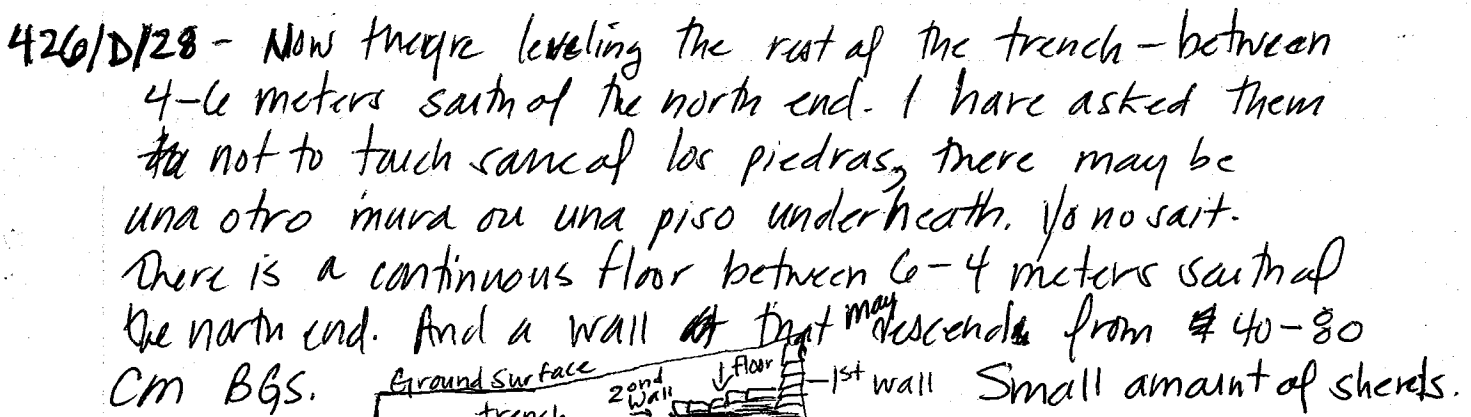 426/D/28 - Now they're leveling the rest of the trench - between
4-6 meters south of the north end. I have asked them
not to touch some of los piedras, there may be
una otro mura ou una piso underneath. Yo no sait.
There is a continuous floor between 6-4 meters south of
the north end. And a wall that may descend from 40-80
cm BGS.
Ground Surface
trench
2ond
Wall
floor
1st wall
Small amount of sherds.